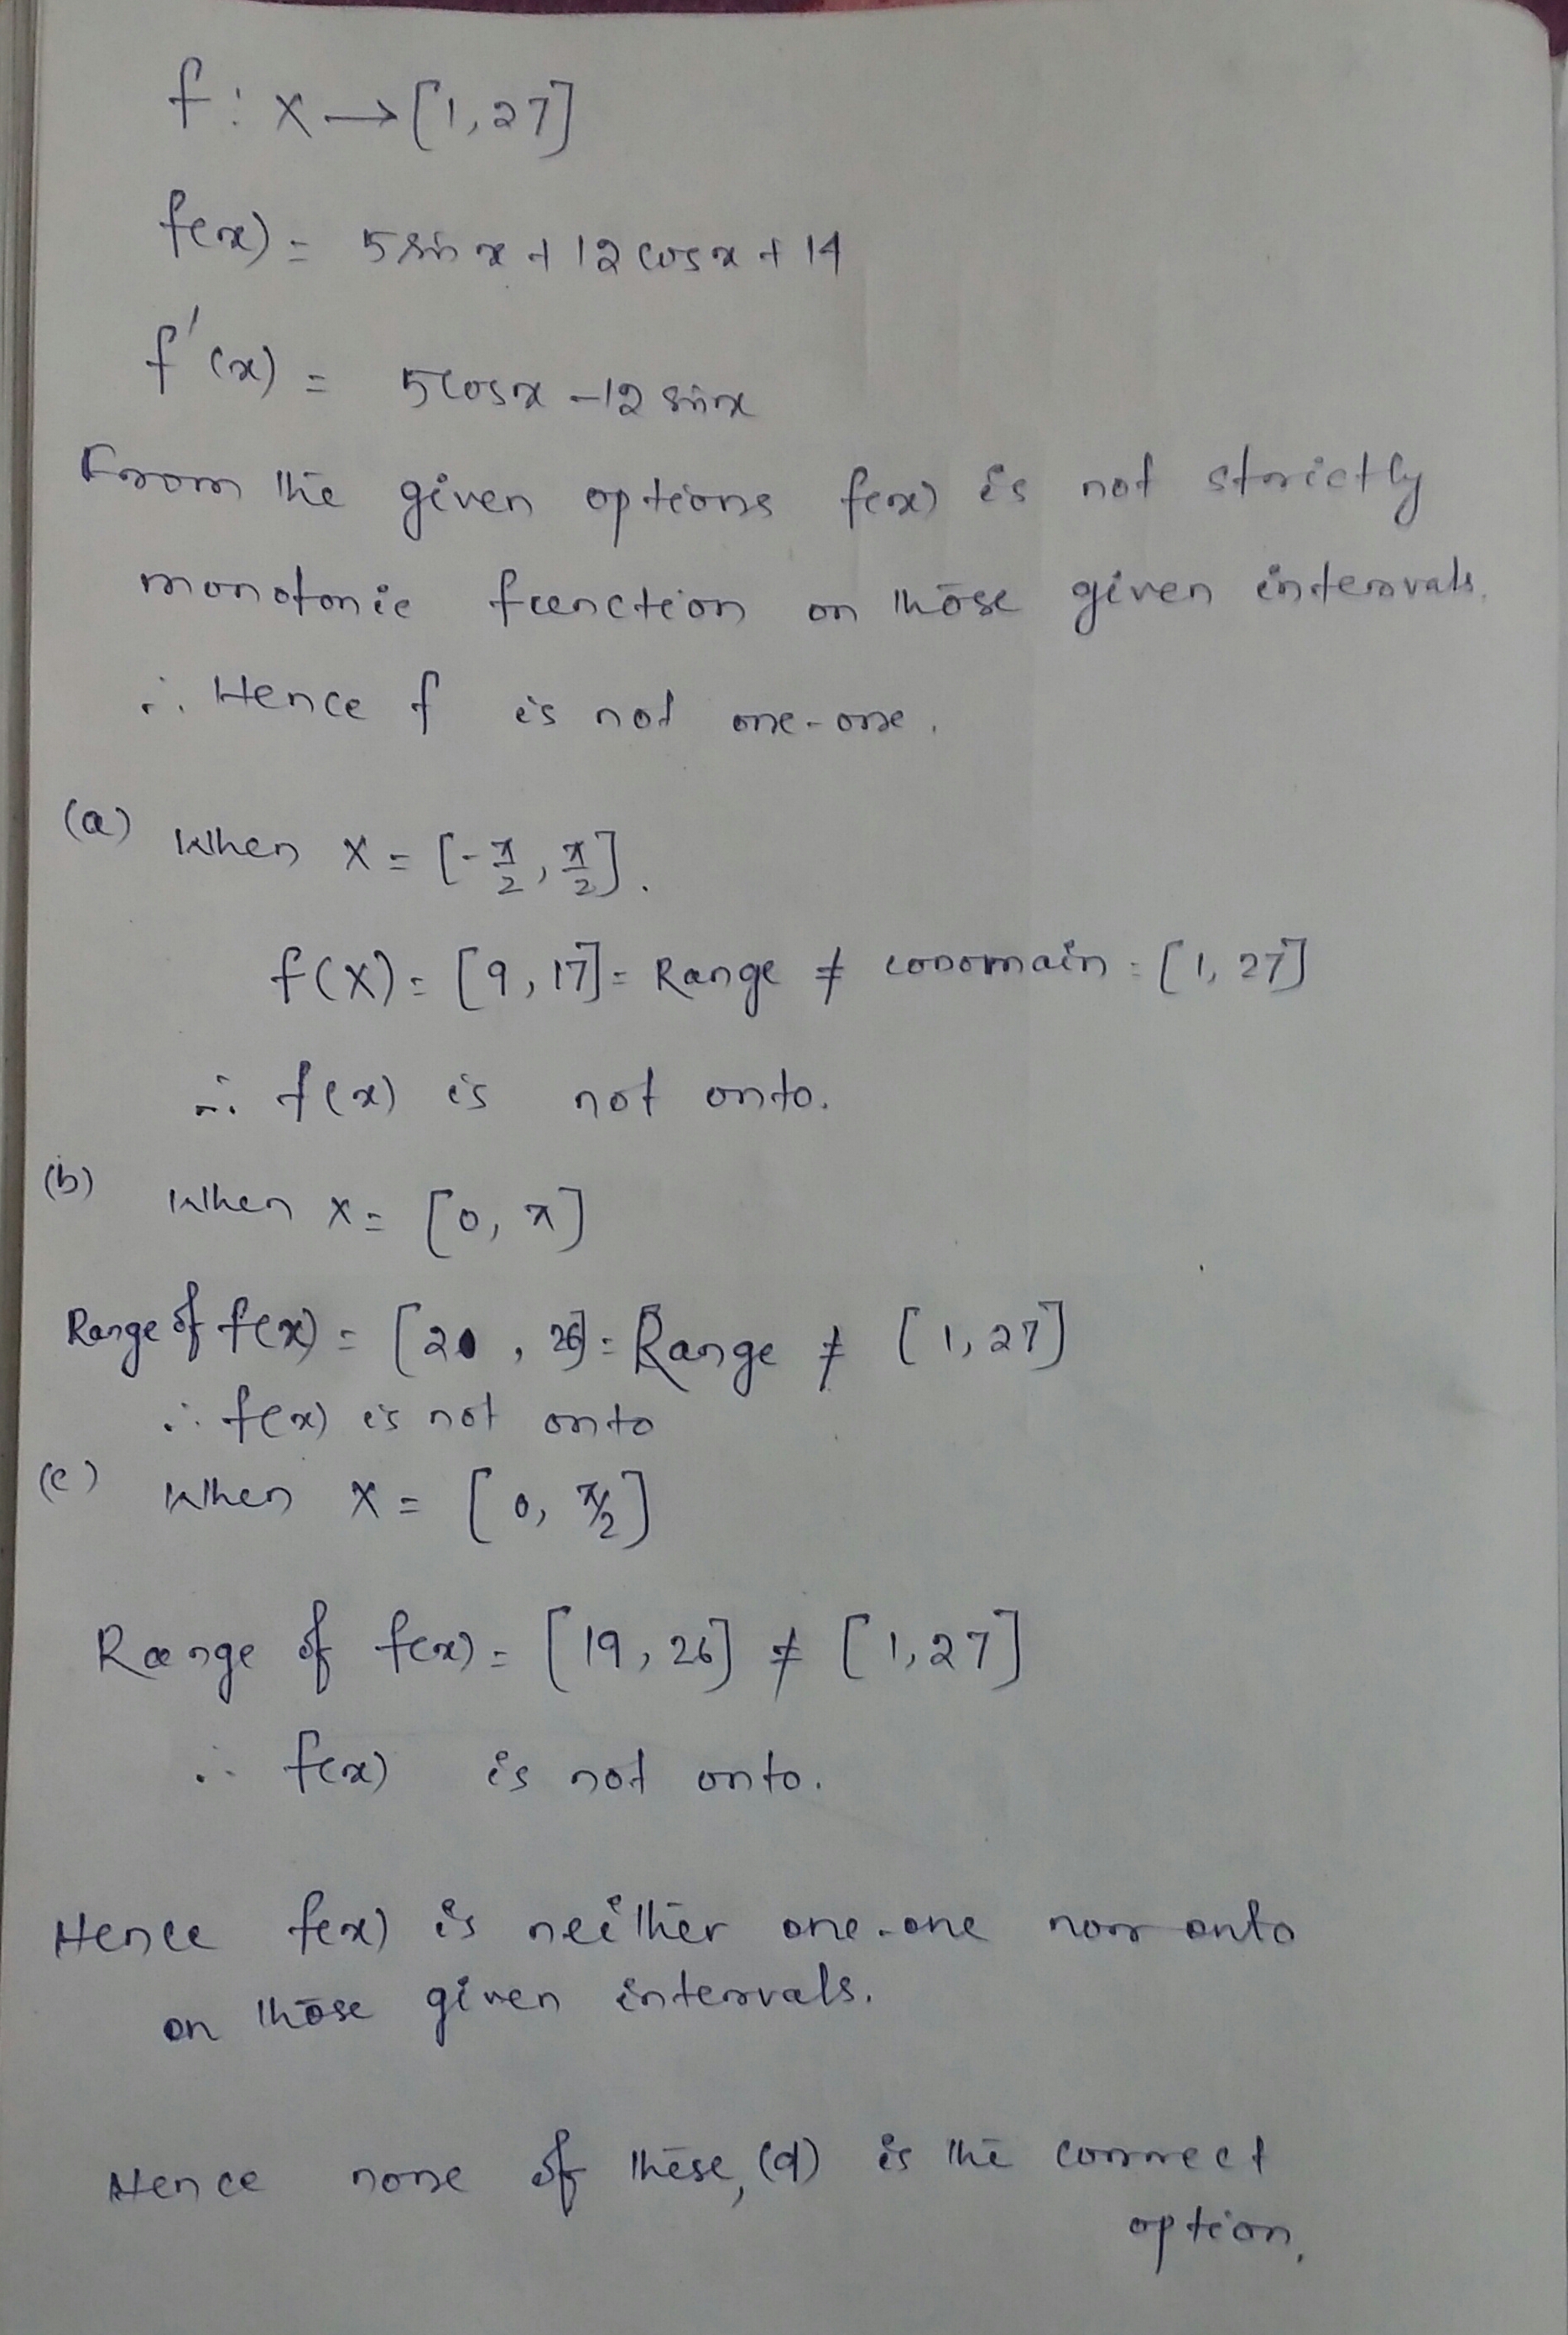 f : X → [1, 27]
f(x) = 5 sin x + 12 cos x + 14
f'(x) = 5 cos x - 12 sin x
From the given options f(x) is not strictly
monotonic function on those given intervals.
∴ Hence f is not one-one.
(a) When X = [-π/2, π/2].
f(X) = [9, 17] = Range ≠ codomain = [1, 27]
∴ f(x) is not onto.
(b) When X = [0, π]
Range of f(x) = [20, 26] = Range ≠ [1, 27]
∴ f(x) is not onto
(c) When X = [0, π/2]
Range of f(x) = [19, 26] ≠ [1, 27]
∴ f(x) is not onto.
Hence f(x) is neither one-one nor onto
on those given intervals.
Hence none of these, (d) is the correct
option.